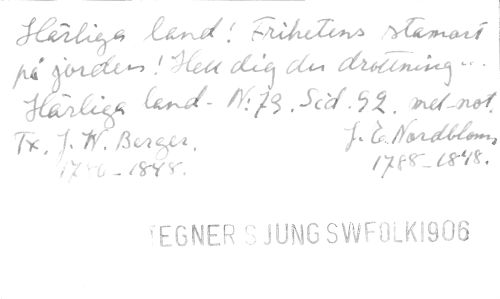 Härliga land! Frihetens stamort
på jorden! Hell dig du drottning...
Härliga land - N: 79. Sid. 92. med not.
Tx. J. W. Berger. J. E. Nordblom,
1786-1848. 1788-1848.
EGNER SJUNG SWFOLK1906